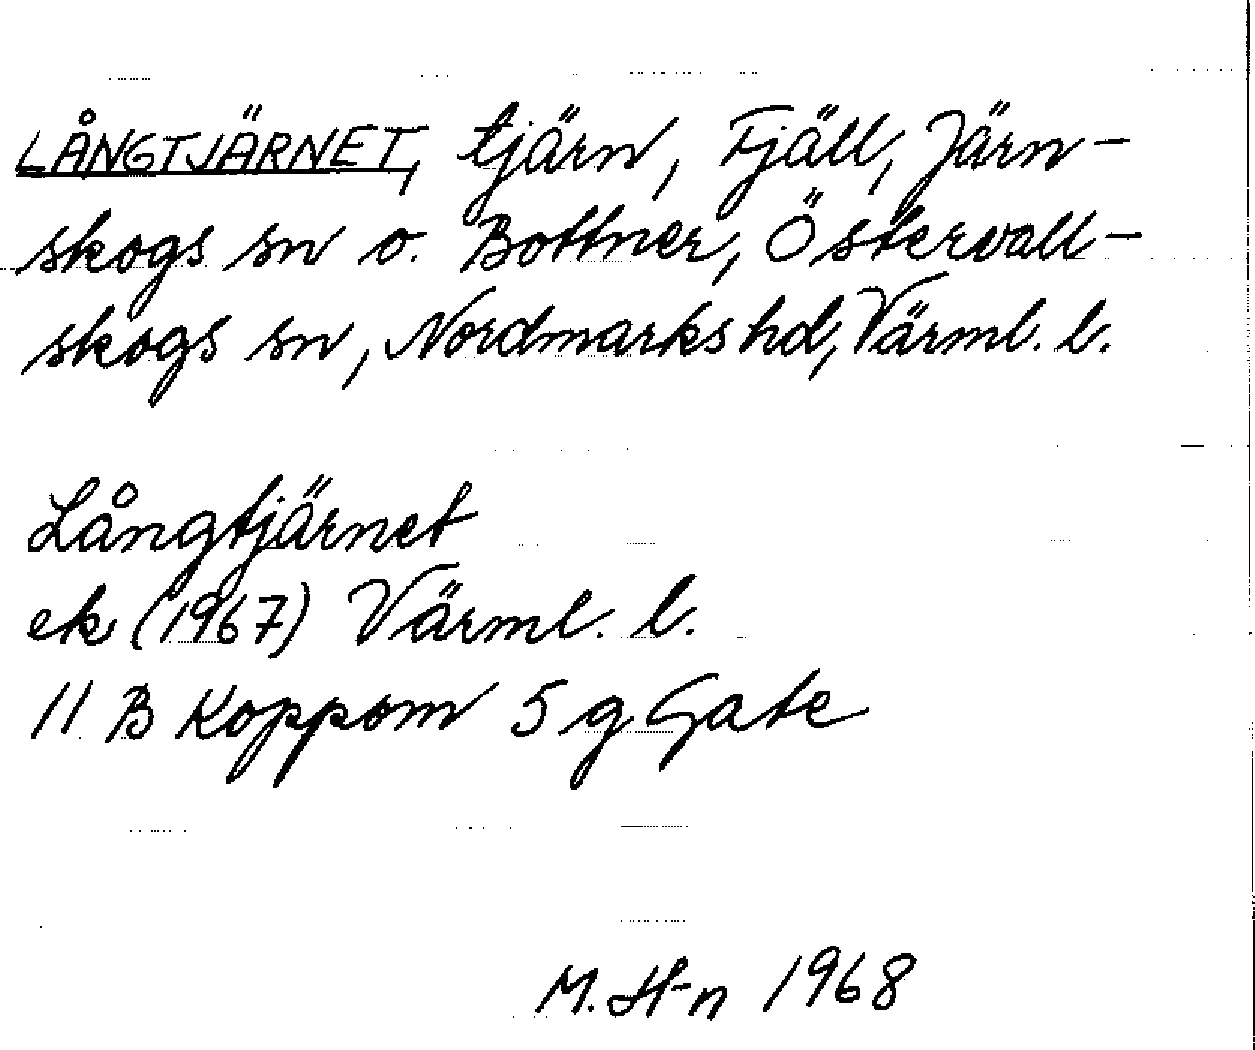 LÅNGTJÄRNET, tjärn, Fjäll, Järn-
skogs sn o. Bottner, Östervall-
skogs sn, Nordmarks hd, Värml. l.
Långtjärnet
ek (1967) Värml. l.
11 B Koppom 5 g Gate
M. H-n 1968